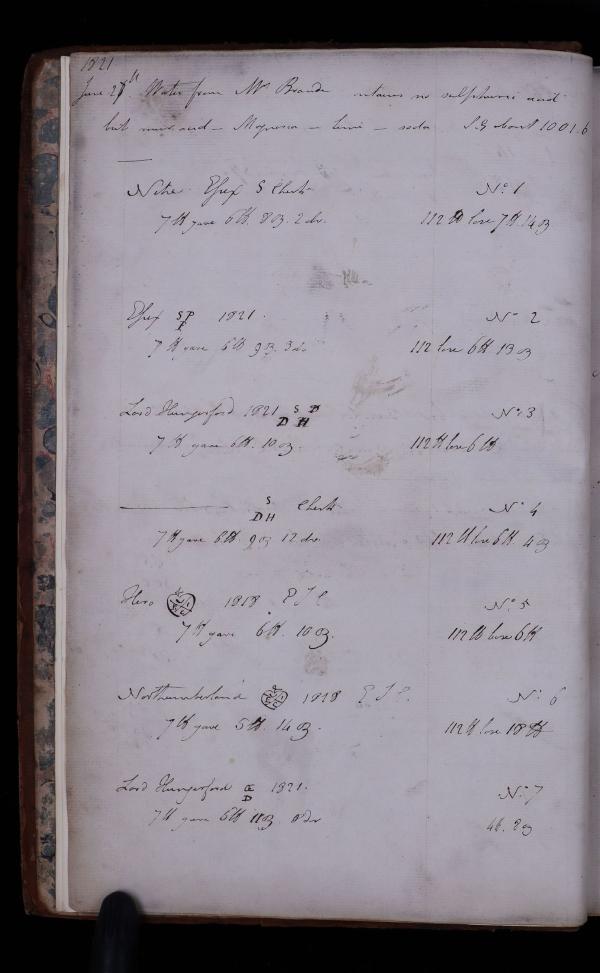 1821
June 27th. Water from Mr Brande contains no sulphuric acid
but mur acid – Magnesia – Lime – soda S.G about 1001.6
Nitre Essex S Chest No 1
7 ℔ gave 6℔. 8oz. 2 dr. 112 ℔ lose 7℔. 14 oz
Essex SP 1821. No 2
P
7 ℔ gave 6℔ 9oz. 3dr 112 lose 6℔ 13 oz
Lord Hungerford 1821 S B No 3
D H
7 ℔ gave 6℔. 10 oz. 112 ℔ lose 6℔
S
DH Chest No 4
7℔ gave 6℔. 9oz 12 dr 112 ℔ lose 6℔. 4 oz
Hero 1818 P I C No 5
7 ℔ gave 6℔. 10 oz. 112 ℔ lose 6℔
Northumberland 1818 P I C. No 6
7 ℔ gave 5℔. 14 oz. 112 ℔ lose 18℔
Lord Hungerford 1821. No 7
7℔ gave 6℔ 11oz 0dr 4℔. 8oz